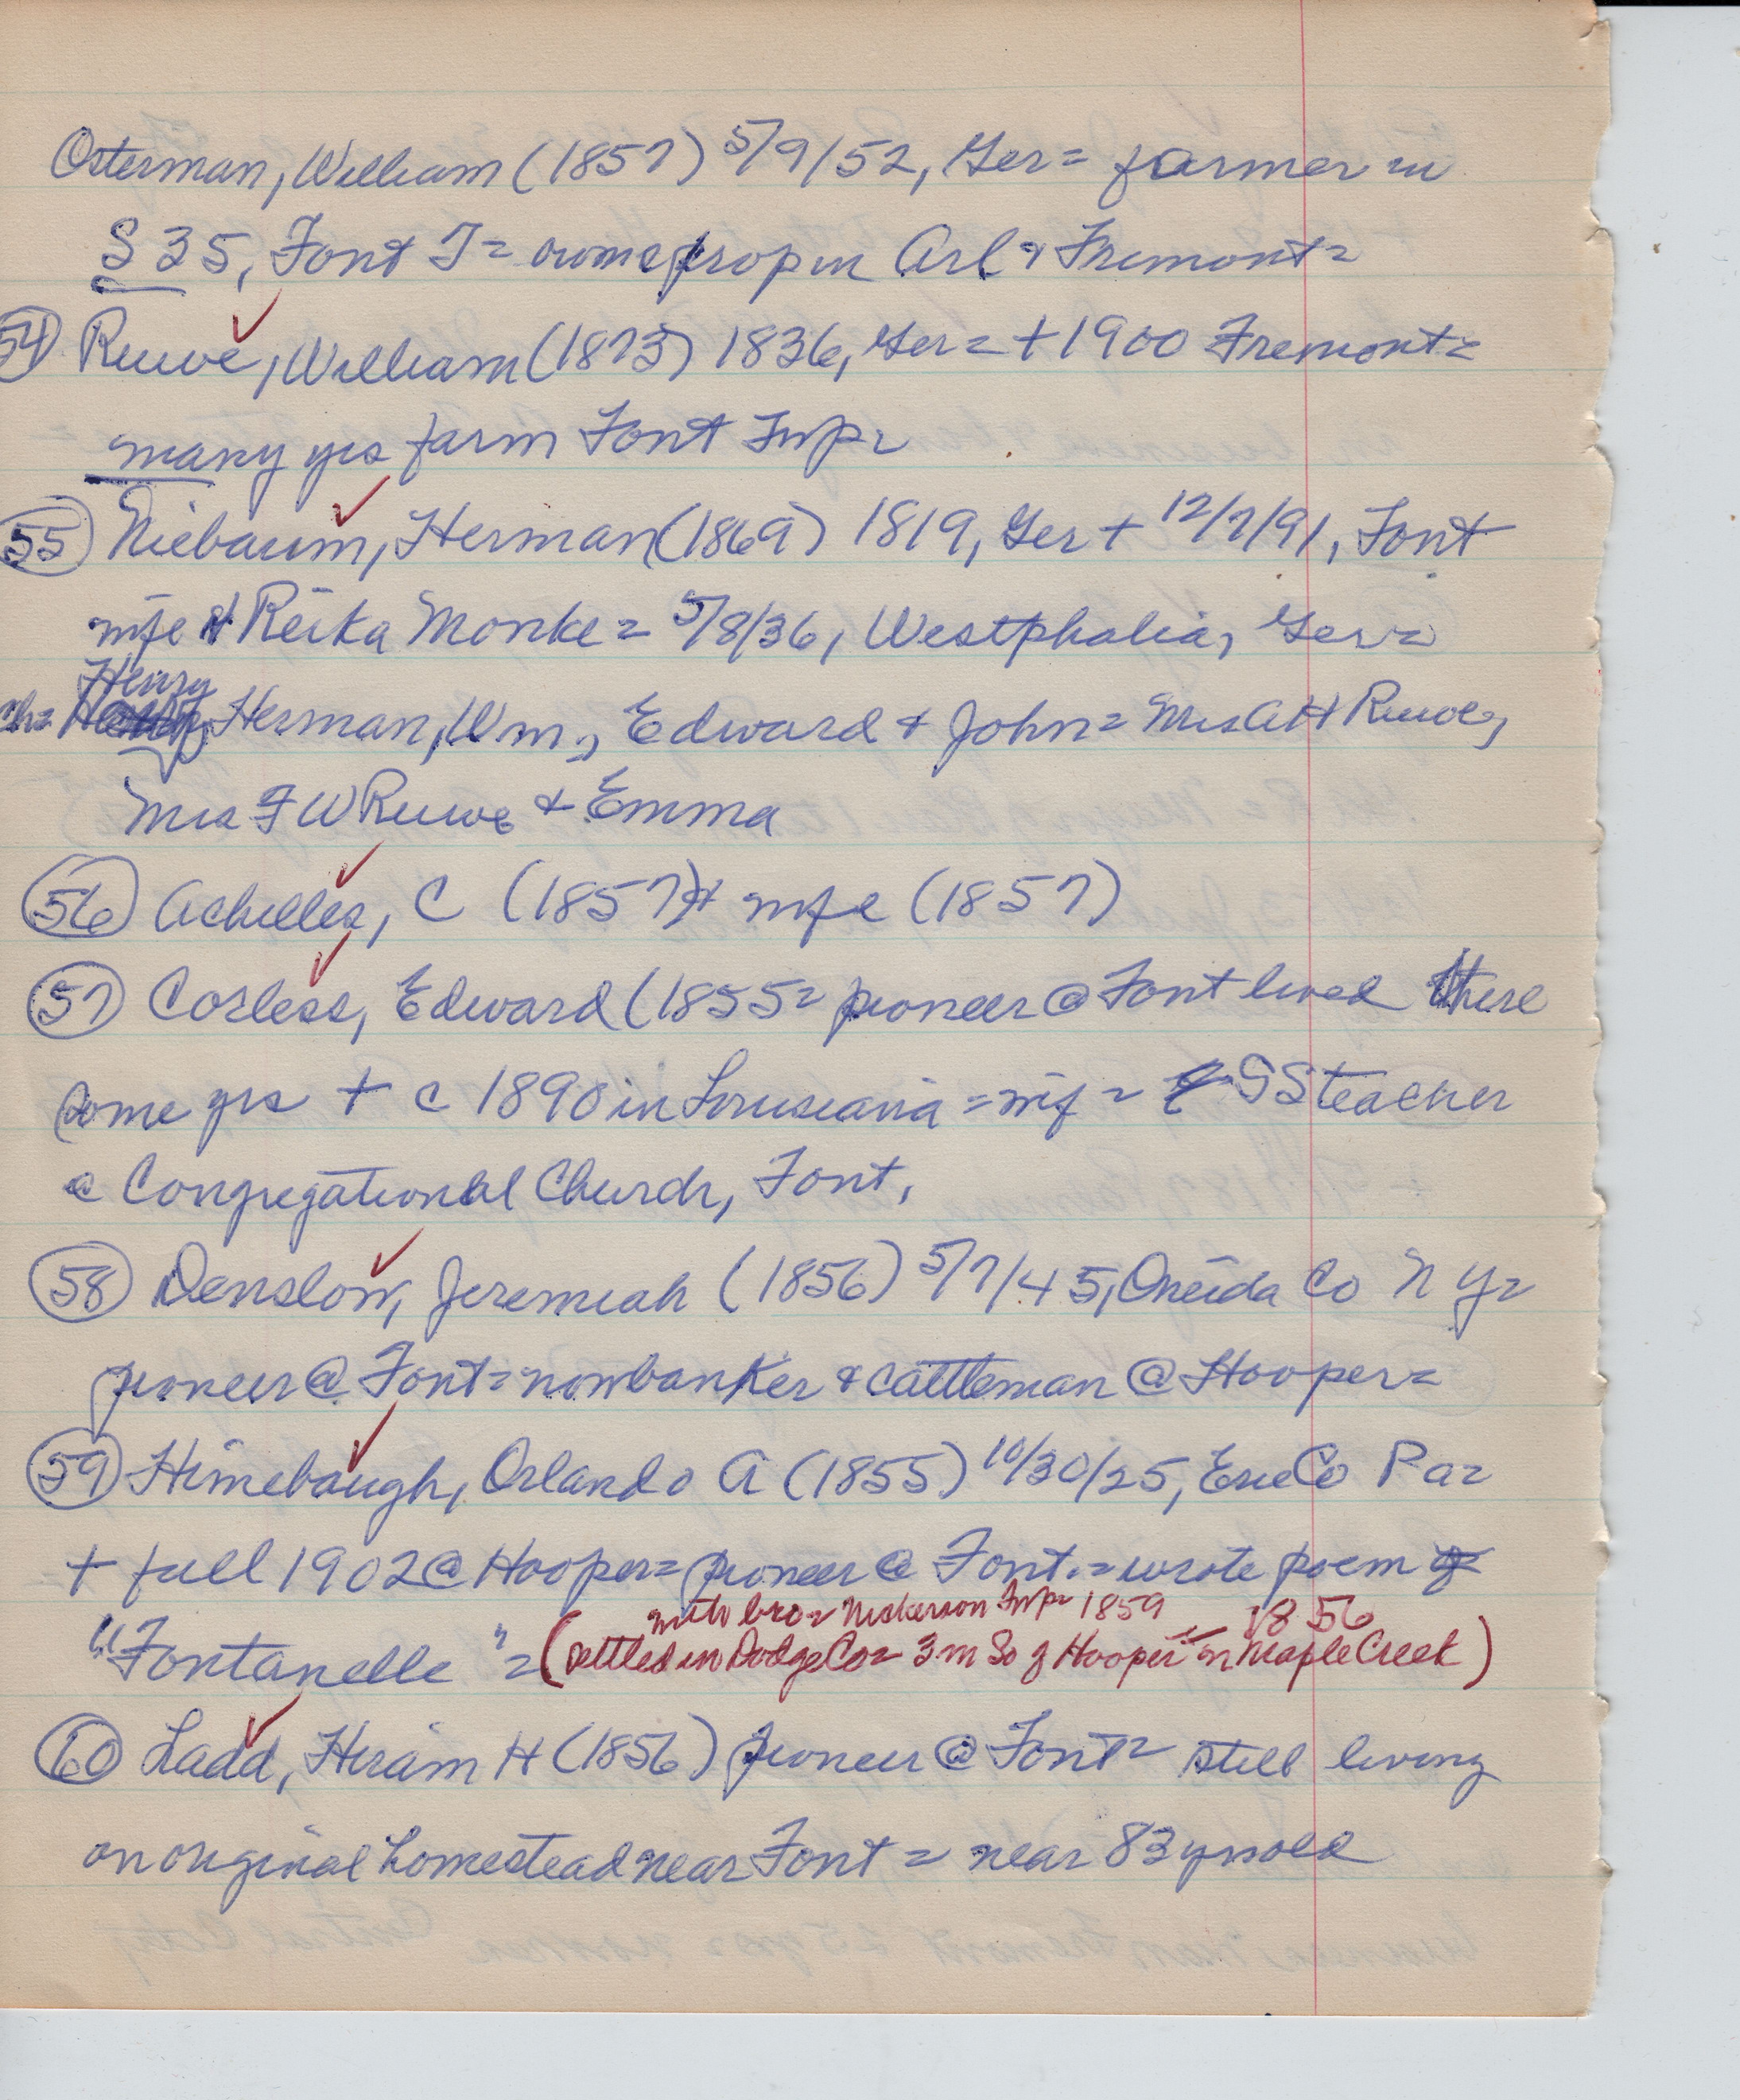 Osterman, William (1857) 5/9/52, Ger = farmer in
S 35, Font T = owns prop in Arl & Fremont =
54 Ruwe, William (1873) 1836, Ger = + 1900 Fremont =
many yrs farm Font Twp =
55 Niebaum, Herman (1869) 1819, Ger + 12/7/91, Font
wife Reika Monke = 5/8/36, Westphalia, Ger =
Henry
Ch = Herman, Wm, Edward & John = Mrs A H Ruwe,
Mrs F W Ruwe & Emma
56 Achilles, C (1857) & wife (1857)
57 Corless, Edward (1855 = pioneer @ Font lived there
some yrs + c 1890 in Louisiana = wif = S S teacher
@ Congregational Church, Font.
58 Denslow, Jeremiah (1856) 5/7/45, Oneida Co N Y =
pioneer @ Font = now banker & cattleman @ Hooper =
59 Himebaugh, Orlando A (1855) 10/30/25, Erie Co Pa =
+ fall 1902 @ Hooper = pioneer @ Font. = wrote poem
with bro = Nickerson Twp = 1859 1856
"Fontanelle" = (settled in Dodge Co = 3 m So of Hooper on Maple Creek)
60 Ladd, Hiram H (1856) pioneer @ Font = still living
on original homestead near Font = near 83 yrs old